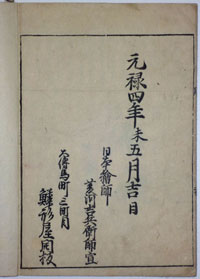 元禄四年未五月吉日
日本繪師
菱河吉兵衛師宣
大傳馬町三町目
鱗形屋開板